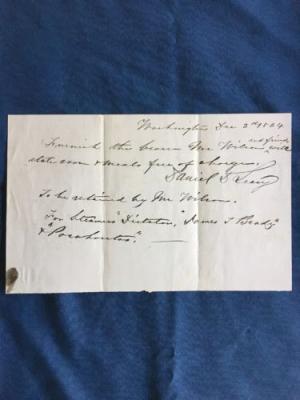 Washington Dec 2nd 1864
Furnish the bearer Mr Wilson, and friend with
state room & meals free of charge.
Daniel S
To be retained by Mr Wilson.
For Steamers "Dictator," "James T Brady"
& "Pocahontas."